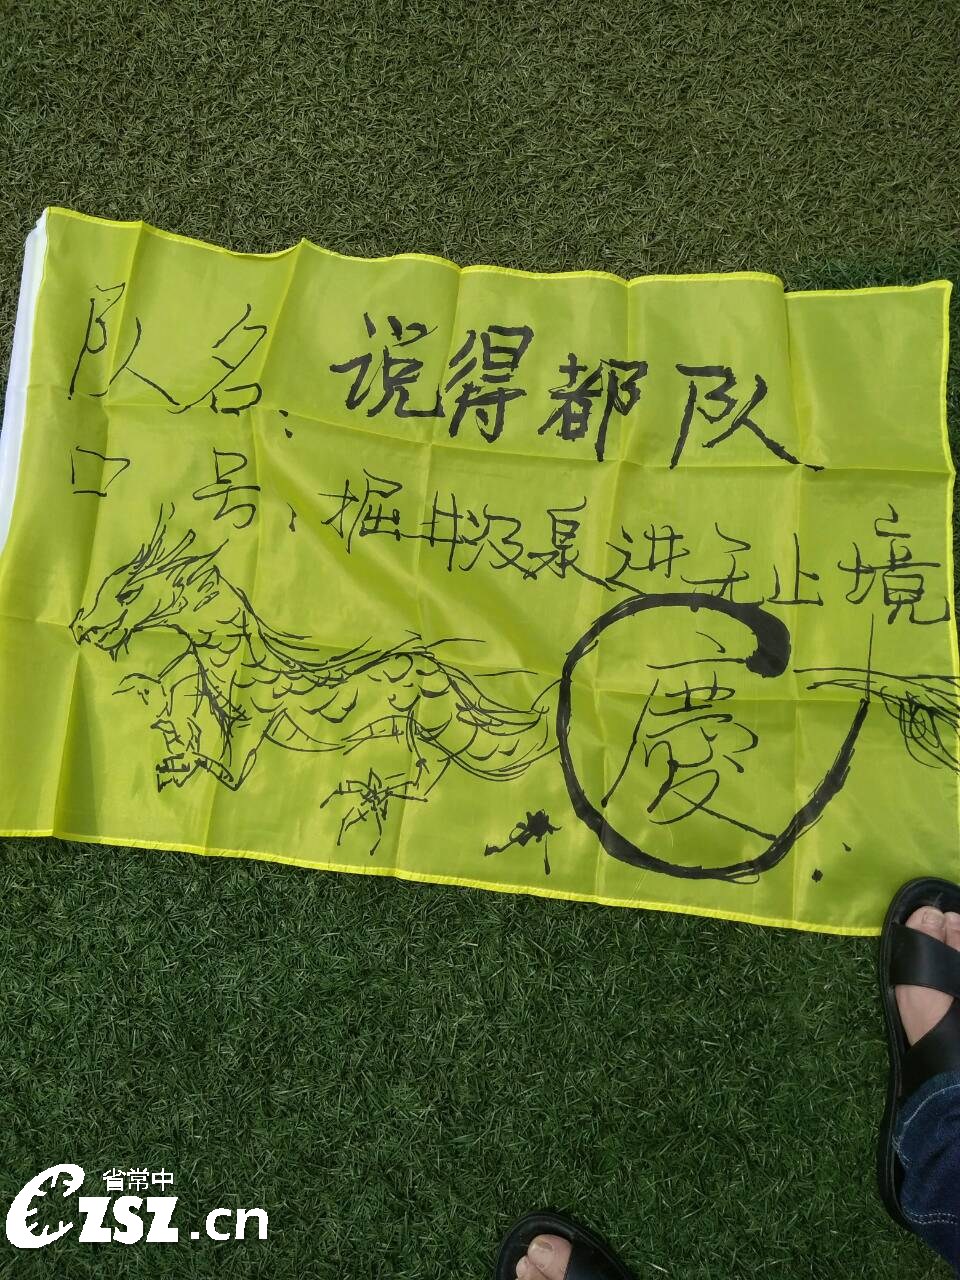 队名：说得都队
口号：掘井汲泉进无止境
慶
省常中
CZSZ.cn